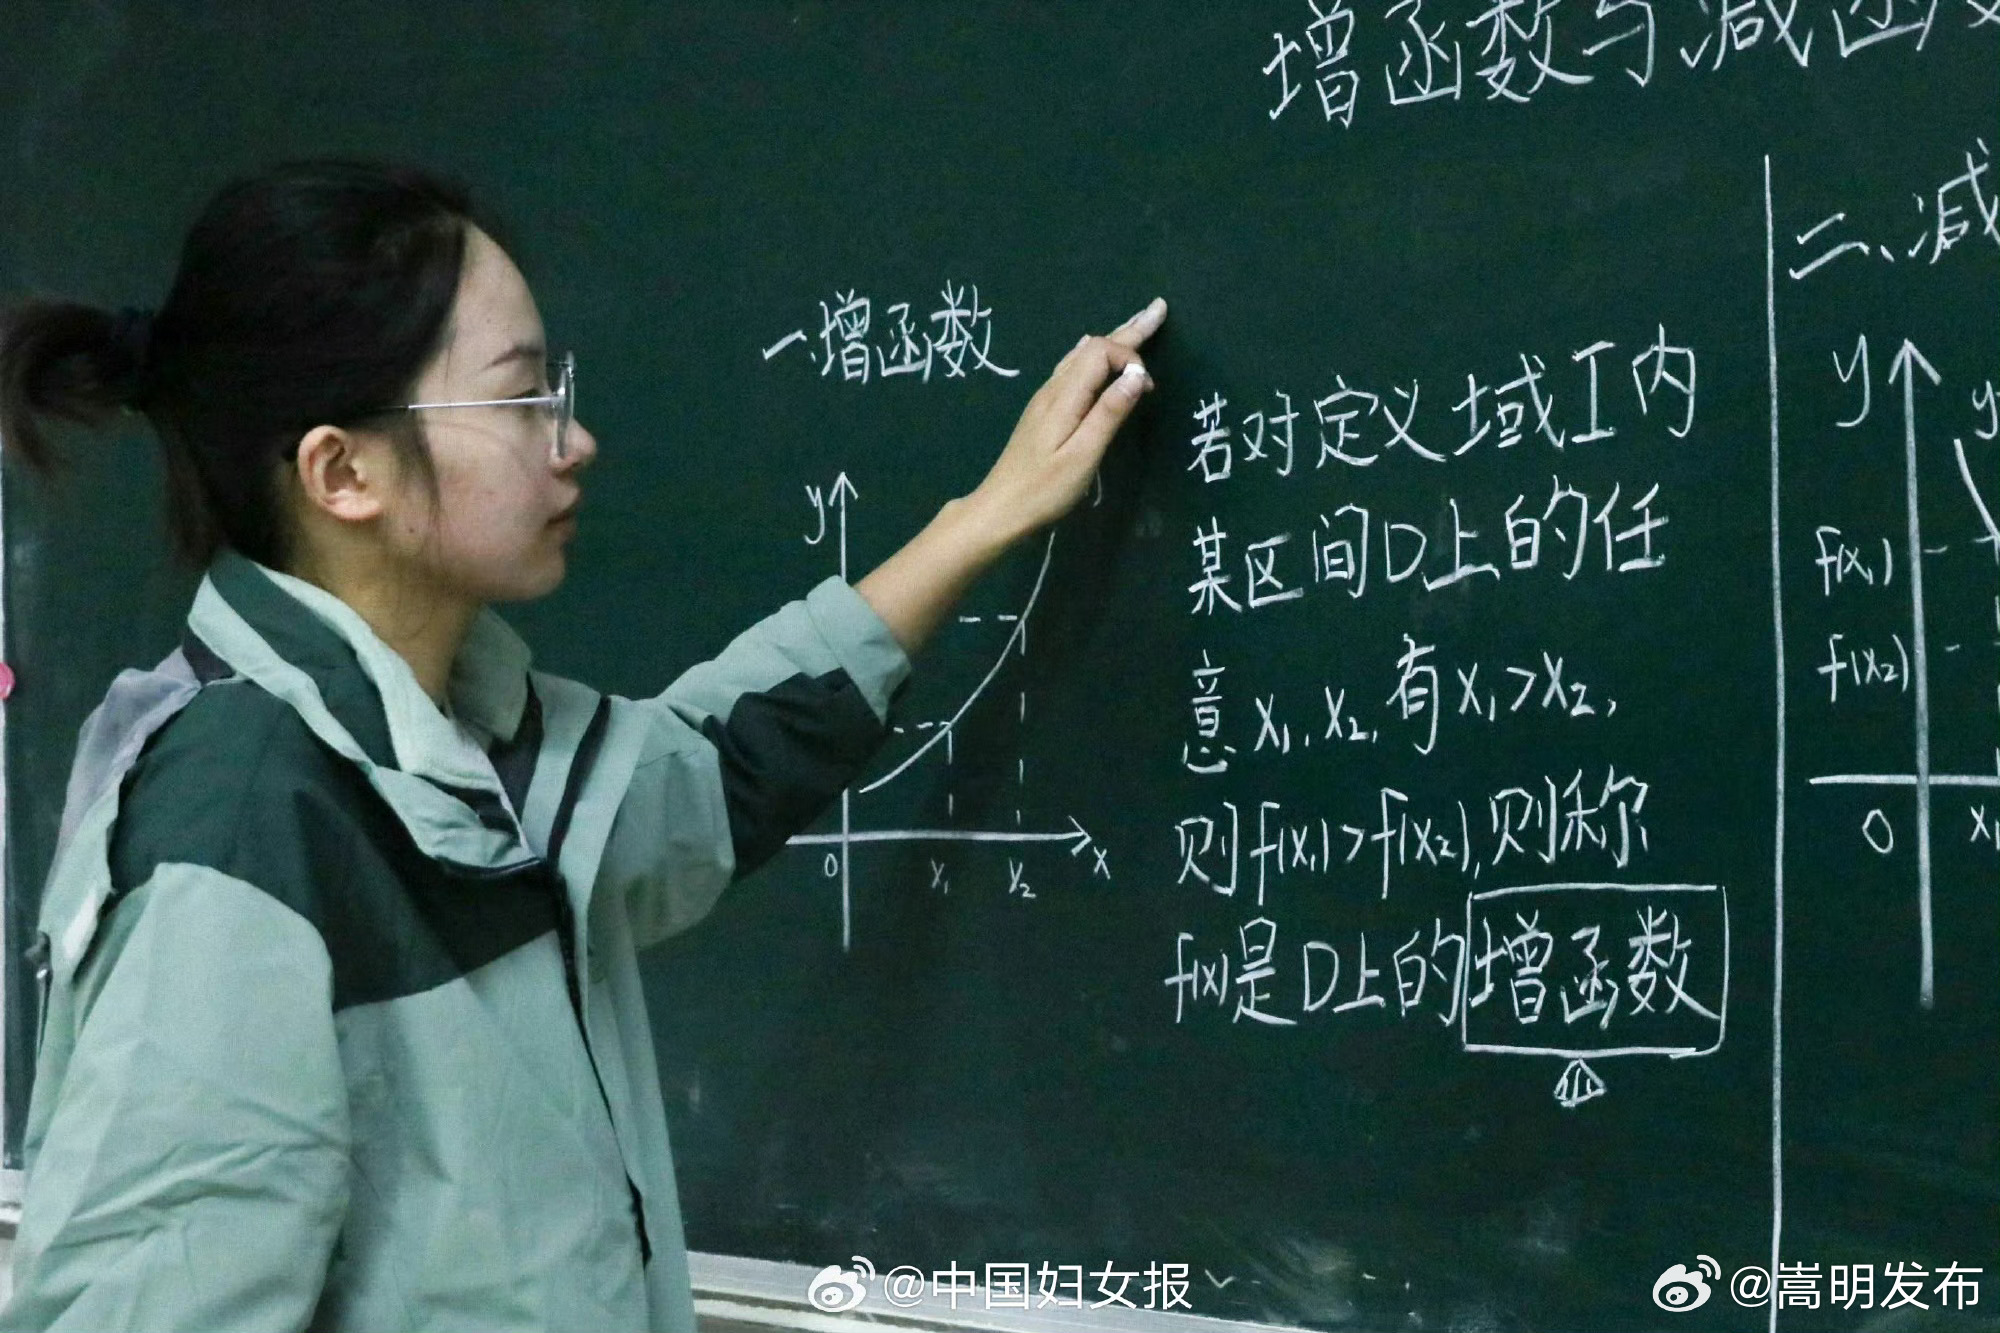 增函数与减函
一、增函数
y
0
x₁
x₂
x
若对定义域I内
某区间D上的任
意x₁,x₂,有x₁>x₂,
则f(x₁)>f(x₂),则称
f(x)是D上的增函数
二、减
y
y
f(x₁)
f(x₂)
0
x₁
@中国妇女报
@嵩明发布